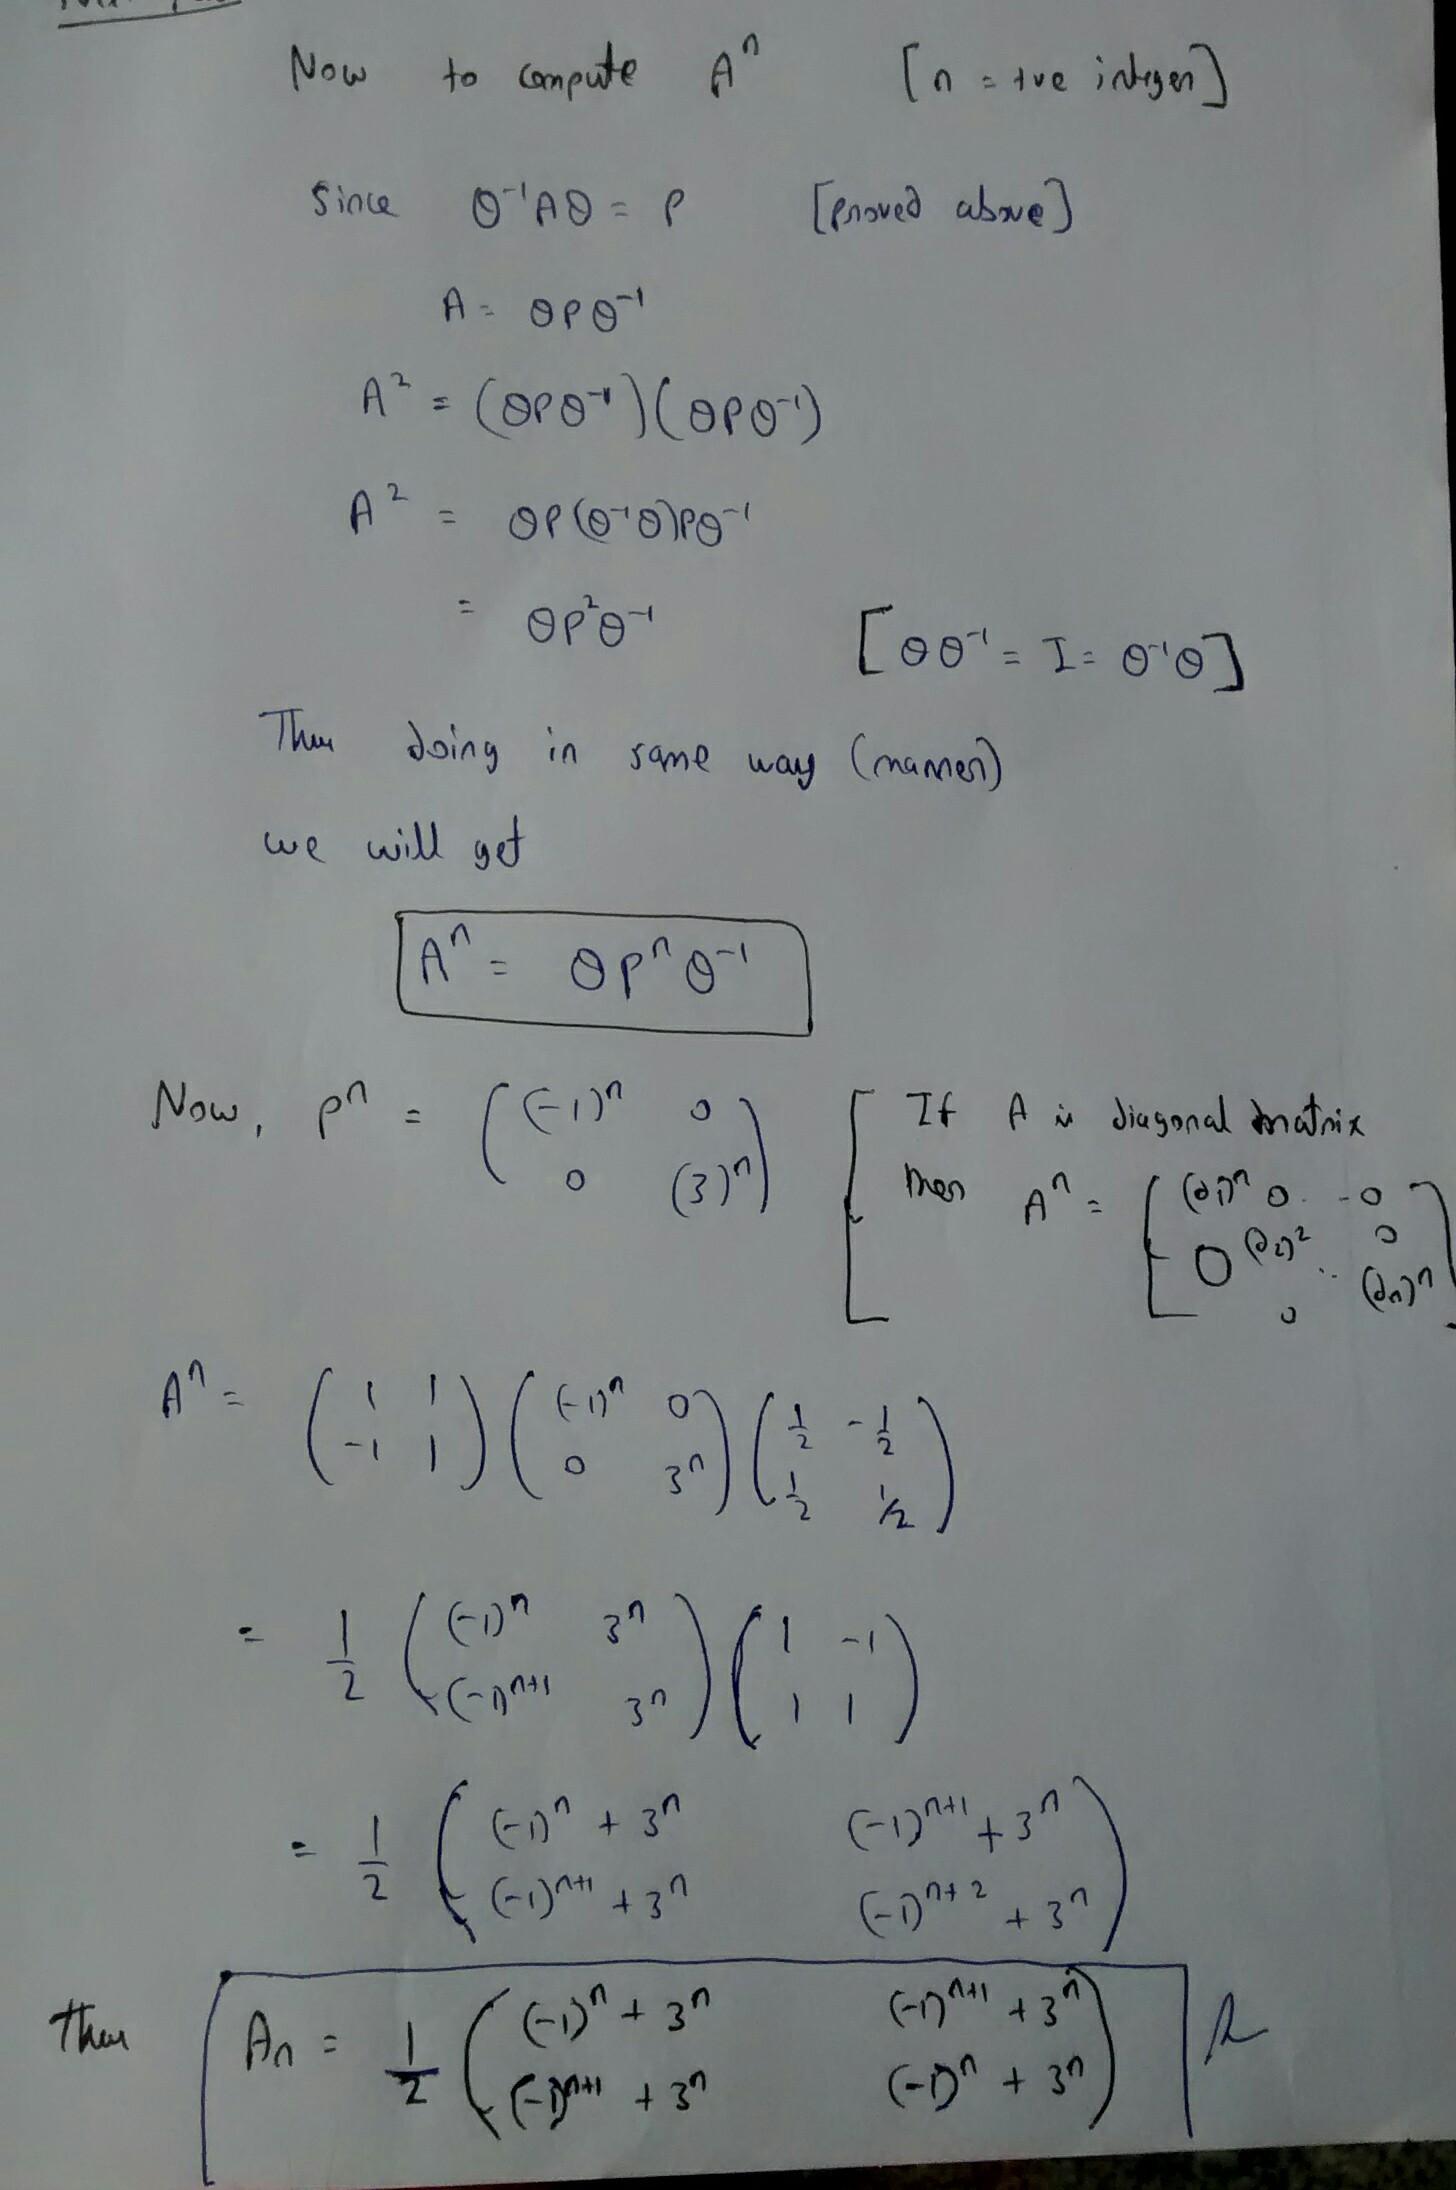 Now to compute Aⁿ [n = +ve integer]
Since Θ⁻¹AΘ = P [proved above]
A = ΘPΘ⁻¹
A² = (ΘPΘ⁻¹)(ΘPΘ⁻¹)
A² = ΘP(Θ⁻¹Θ)PΘ⁻¹
= ΘP²Θ⁻¹ [ΘΘ⁻¹ = I = Θ⁻¹Θ]
Thus doing in same way (manner)
we will get
Aⁿ = ΘPⁿΘ⁻¹
Now, Pⁿ = ( (-1)ⁿ 0
0 (3)ⁿ )
[ If A is diagonal matrix
then Aⁿ = [ (d₁)ⁿ 0 . . 0
0 (d₂)² . . 0
0 (dₙ)ⁿ ]
Aⁿ = ( 1 1 ) ( (-1)ⁿ 0 ) ( 1/2 -1/2 )
( -1 1 ) ( 0 3ⁿ ) ( 1/2 1/2 )
= 1/2 ( (-1)ⁿ 3ⁿ ) ( 1 -1 )
( (-1)ⁿ⁺¹ 3ⁿ ) ( 1 1 )
= 1/2 ( (-1)ⁿ + 3ⁿ (-1)ⁿ⁺¹ + 3ⁿ )
( (-1)ⁿ⁺¹ + 3ⁿ (-1)ⁿ⁺² + 3ⁿ )
Thus An = 1/2 ( (-1)ⁿ + 3ⁿ (-1)ⁿ⁺¹ + 3ⁿ )
( (-1)ⁿ⁺¹ + 3ⁿ (-1)ⁿ + 3ⁿ )